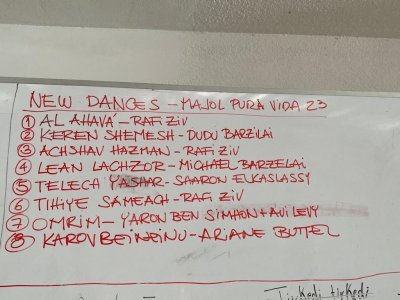 NEW DANCES - MAJOL PURA VIDA 23
① AL AHAVÁ - RAFI ZIV
② KEREN SHEMESH - DUDU BARZILAI
③ ACHSHAV HAZMAN - RAFI ZIV
④ LEAN LACHZOR - MICHAEL BARZELAI
⑤ TELECH YASHAR - SAARON ELKASLASSY
⑥ TIHIYE SAMEACH - RAFI ZIV
⑦ OMRIM - YARON BEN SIMHON + AVI LEVY
⑧ KAROV BEINEINU - ARIANE BUTTEL
Tirkedi tirkedi